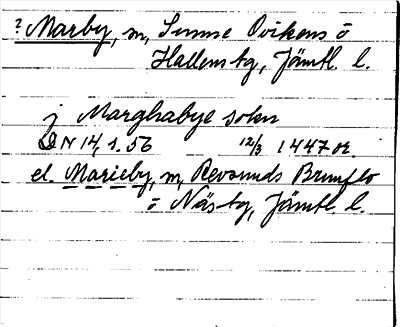 ? Marby, sn, Sunne Ovikens o
Hallens tg, Jämtl. l.
j Marghabye sokn
DN 14, 1. 56 12/3 1447 or.
el. Marieby, sn, Revsunds Brunflo
o Näs tg, Jämtl. l.